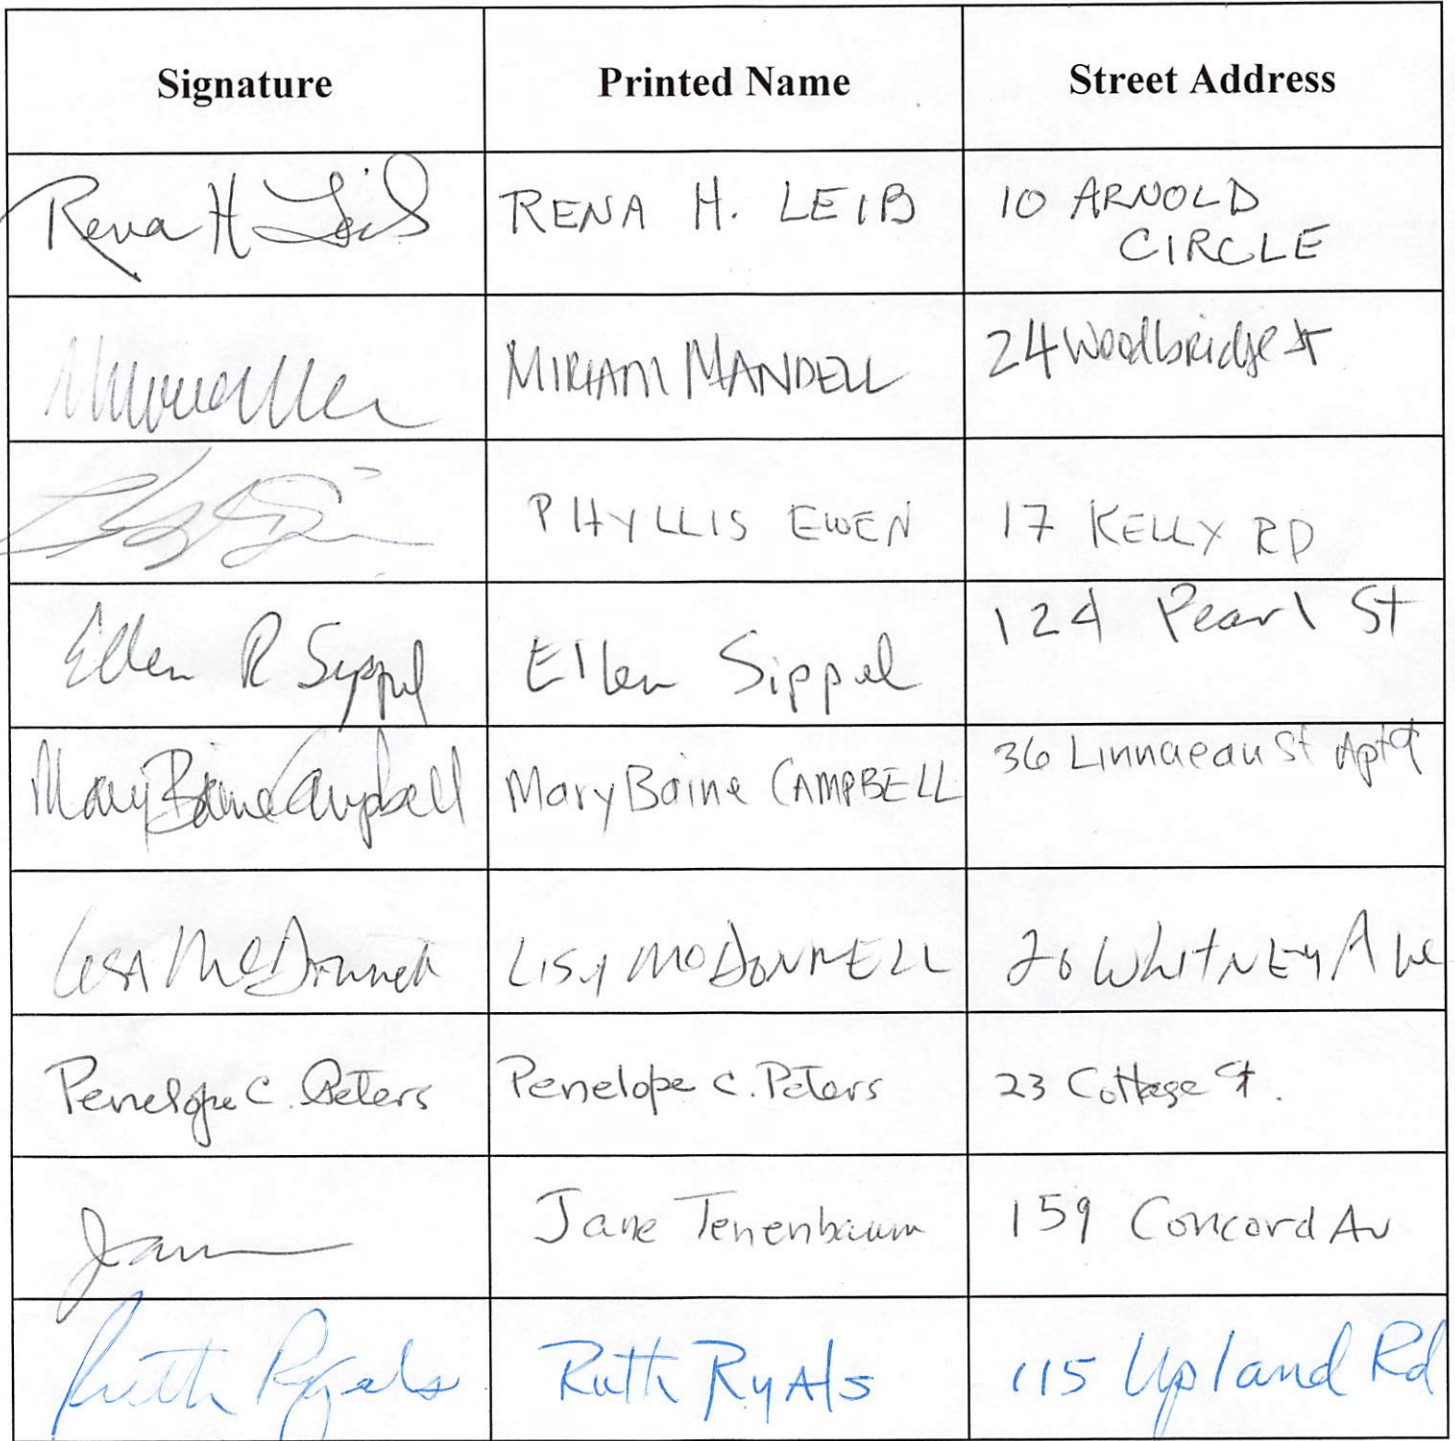 Signature Printed Name Street Address
Rena H Leib RENA H. LEIB 10 ARNOLD
CIRCLE
MIRIAM MANDELL 24 Woodbridge St
PHYLLIS EWEN 17 KELLY RD
Ellen R Sippel Ellen Sippel 124 Pearl St
Mary Baine Campbell Mary Baine CAMPBELL 36 Linnaean St Apt 9
Lisa McDonnell LISA McDONNELL 20 WHITNEY Ave
Penelope C. Peters Penelope C. Peters 23 Cottage St.
Jane Tenenbaum 159 Concord Av
Ruth Ryals Ruth RyAls 115 Upland Rd